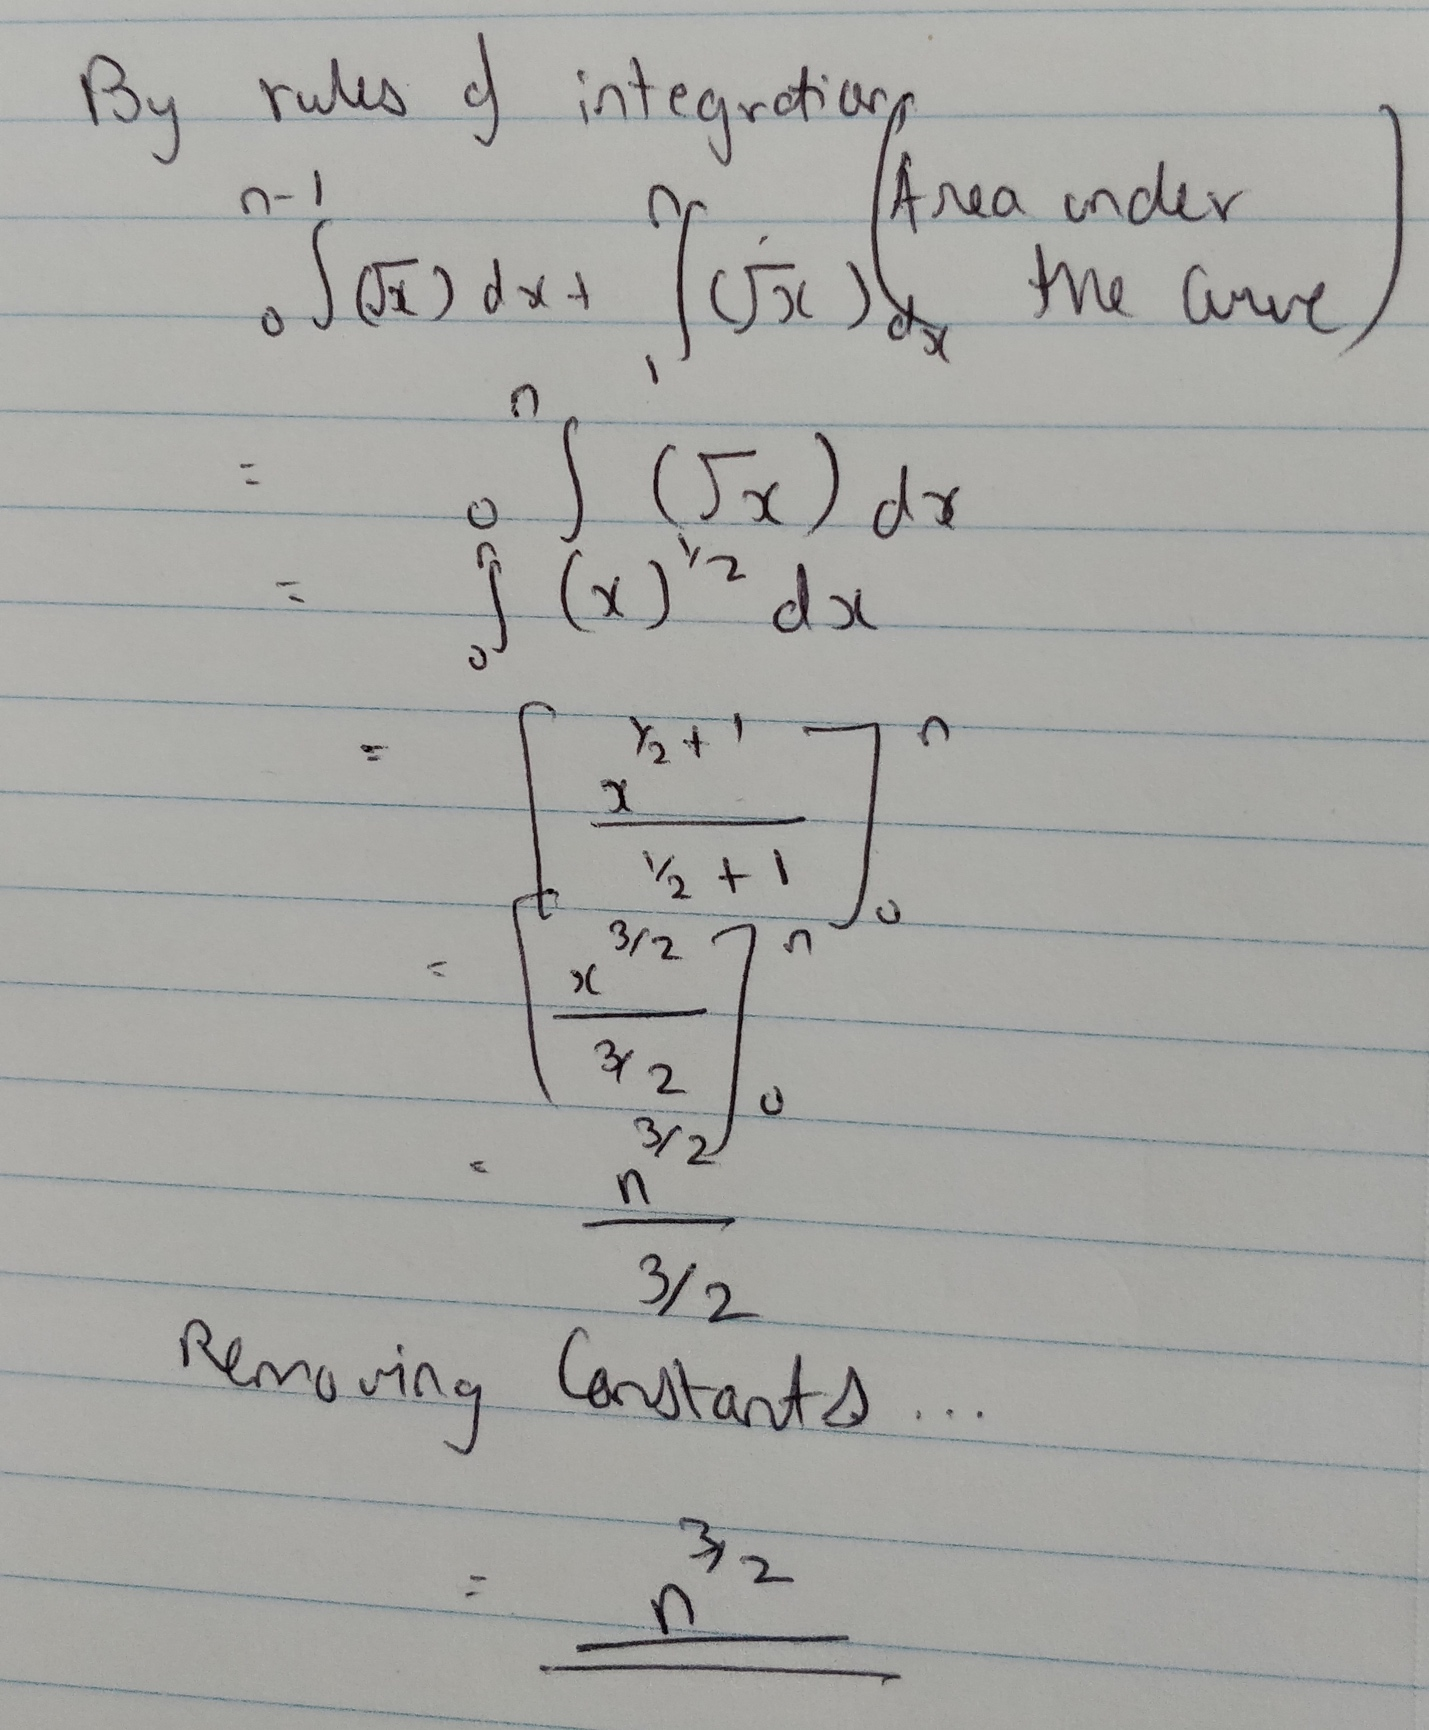 By rules of integration,
n-1 n (Area under
0∫(√x) dx + 1∫(√x) dx the Curve)
= 0∫n (√x) dx
= 0∫n (x)^1/2 dx
= [x^1/2+1 / 1/2+1]n 0
= [x^3/2 / 3/2]n 0
= n^3/2 / 3/2
Removing Constants...
= n^3/2